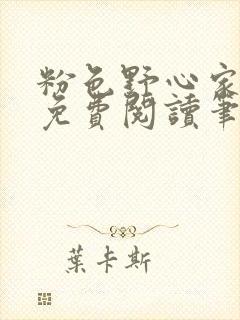 粉色野心家
免費閱讀筆
葉卡斯